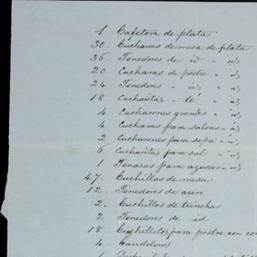 1 Cafetera de plata
30. Cucharas de mesa de plata
36. Tenedores de id " id
20 Cucharas de postre " id
24. Tenedores " id " id
18 Cucharitas " té " id
4 Cucharones grandes " id
4 Cucharas para salsas " id
2 Cucharones para sopa " id
6 Cucharitas para sal " id
1 Tenazas para azucar " id
47. Cuchillos de mesa
12. Tenedores de acero
2. Cuchillos de trinchar
2 Tenedores de id
18 Cuchillitos para postre con
4. Candeleros
1